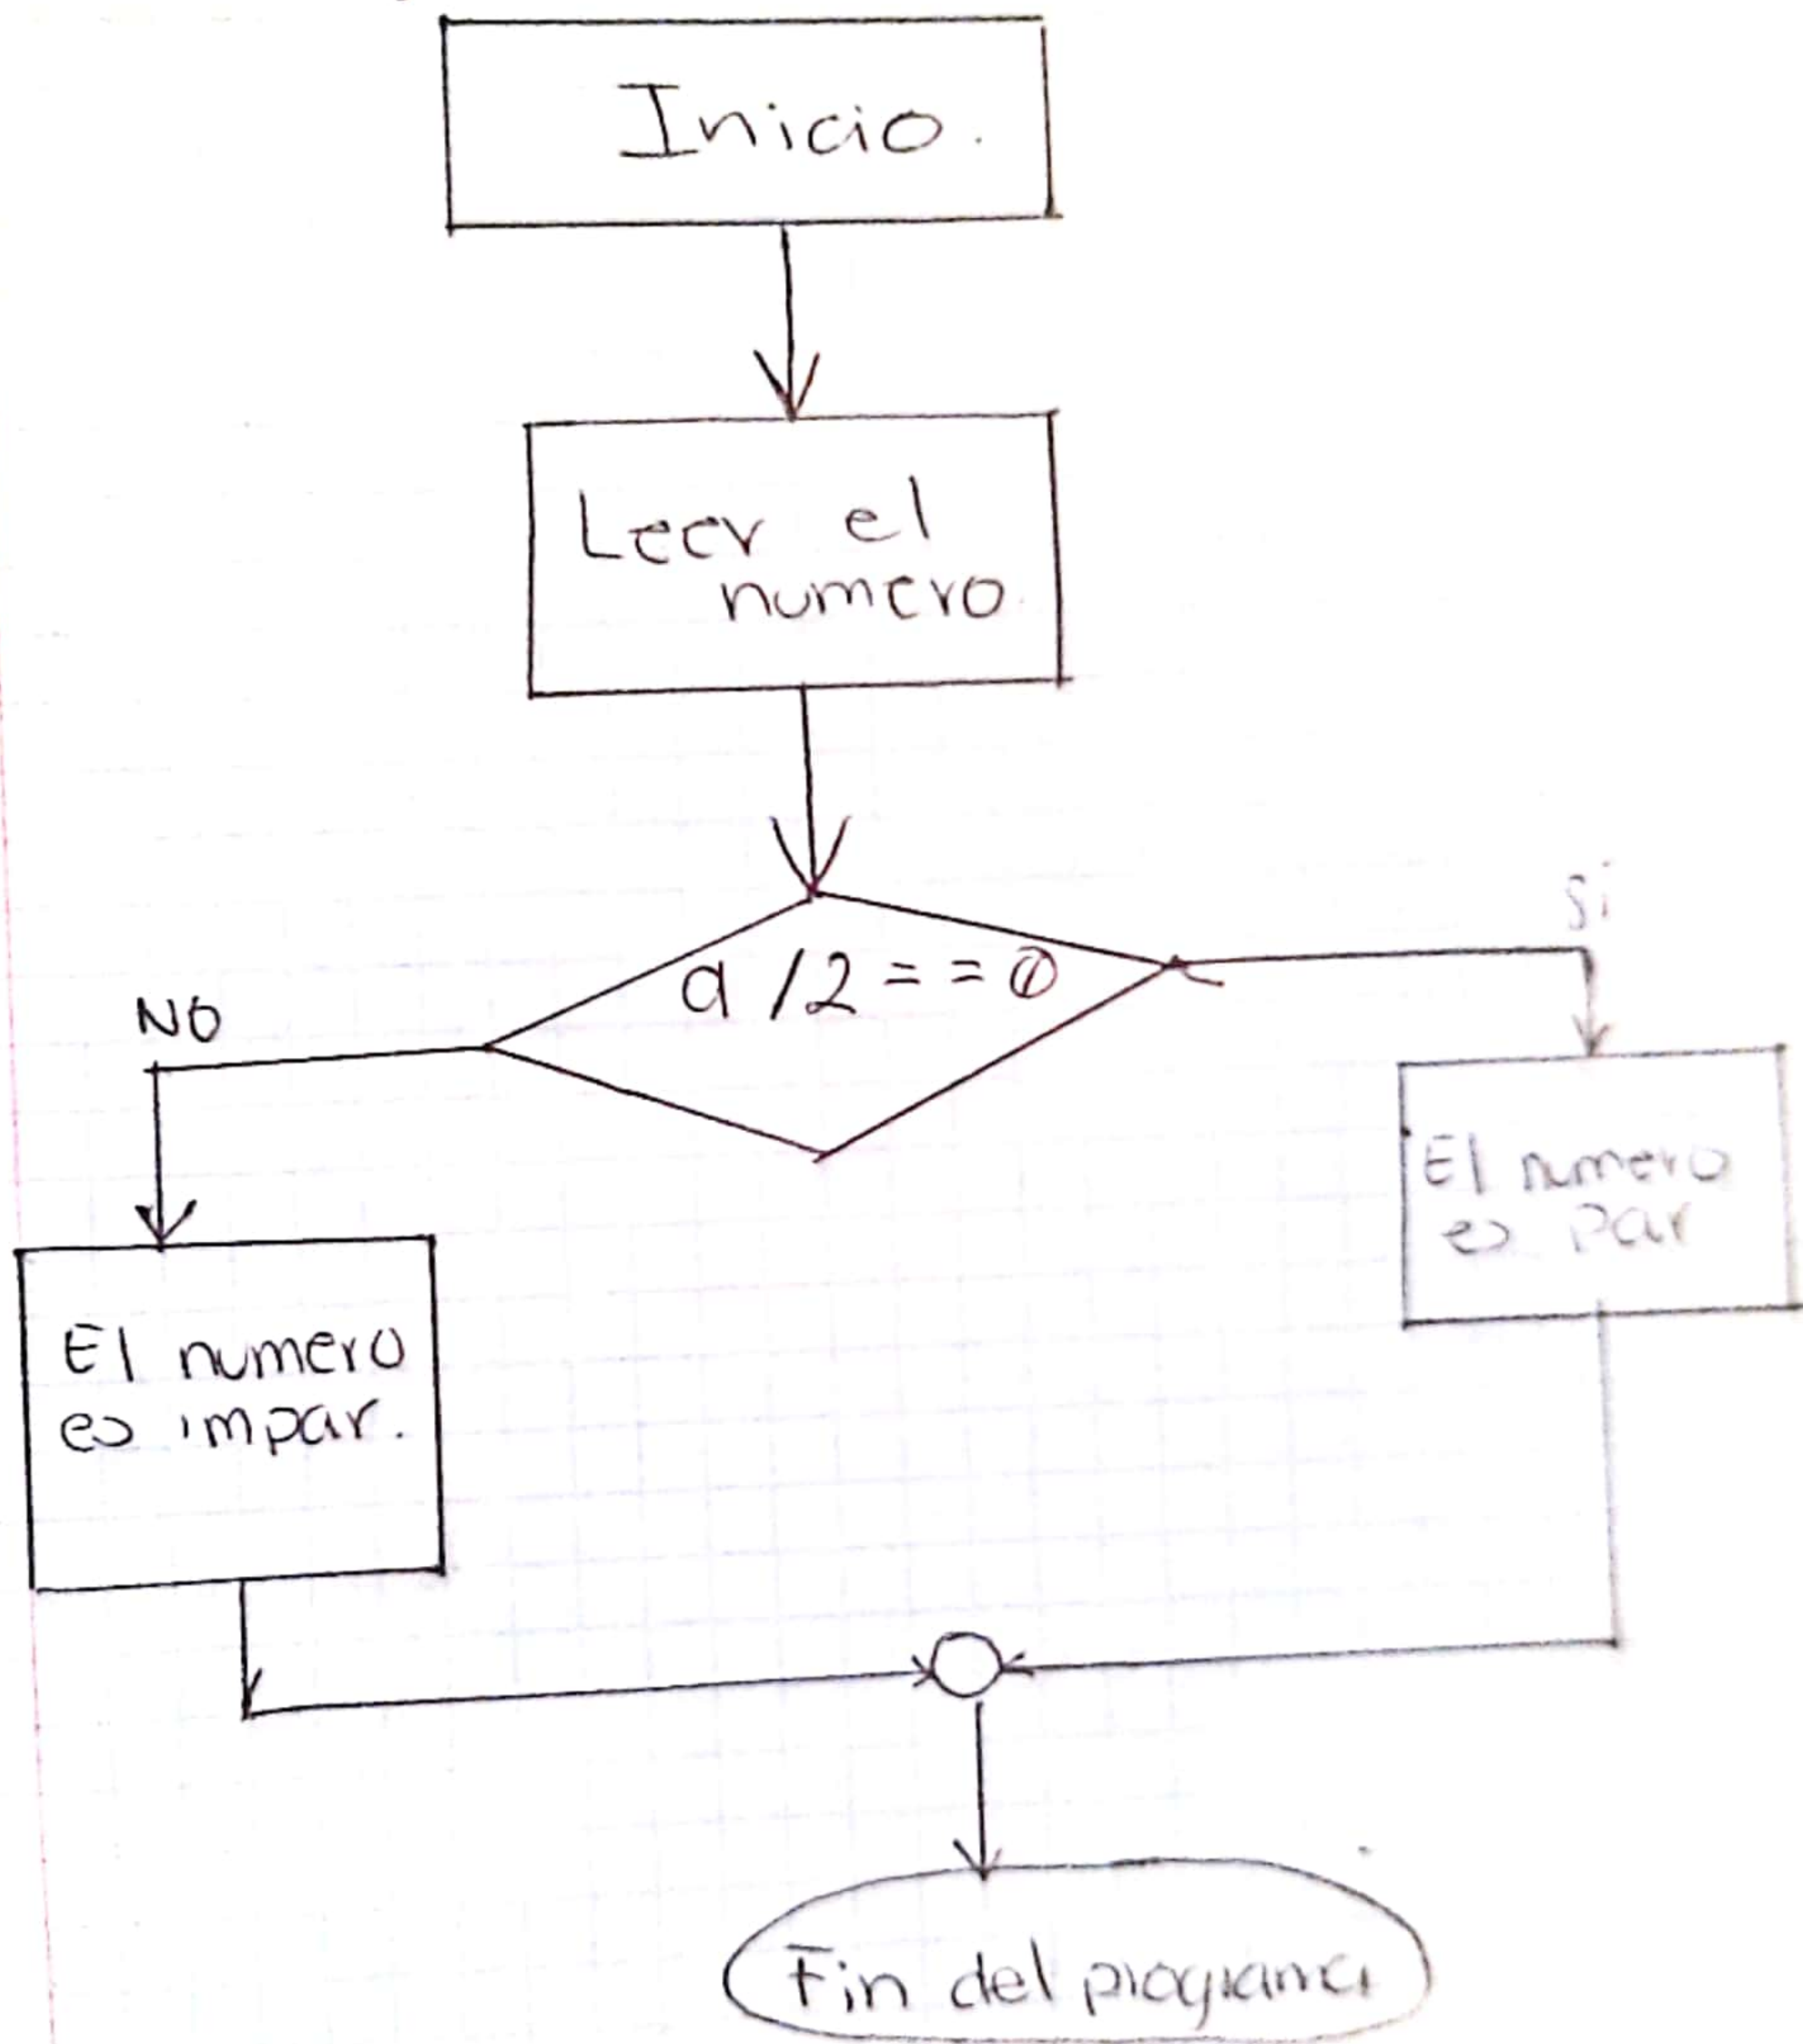 Inicio.
Leer el
numero.
a /2 = = 0
Si
NO
El numero
es par
El numero
es impar.
Fin del programa